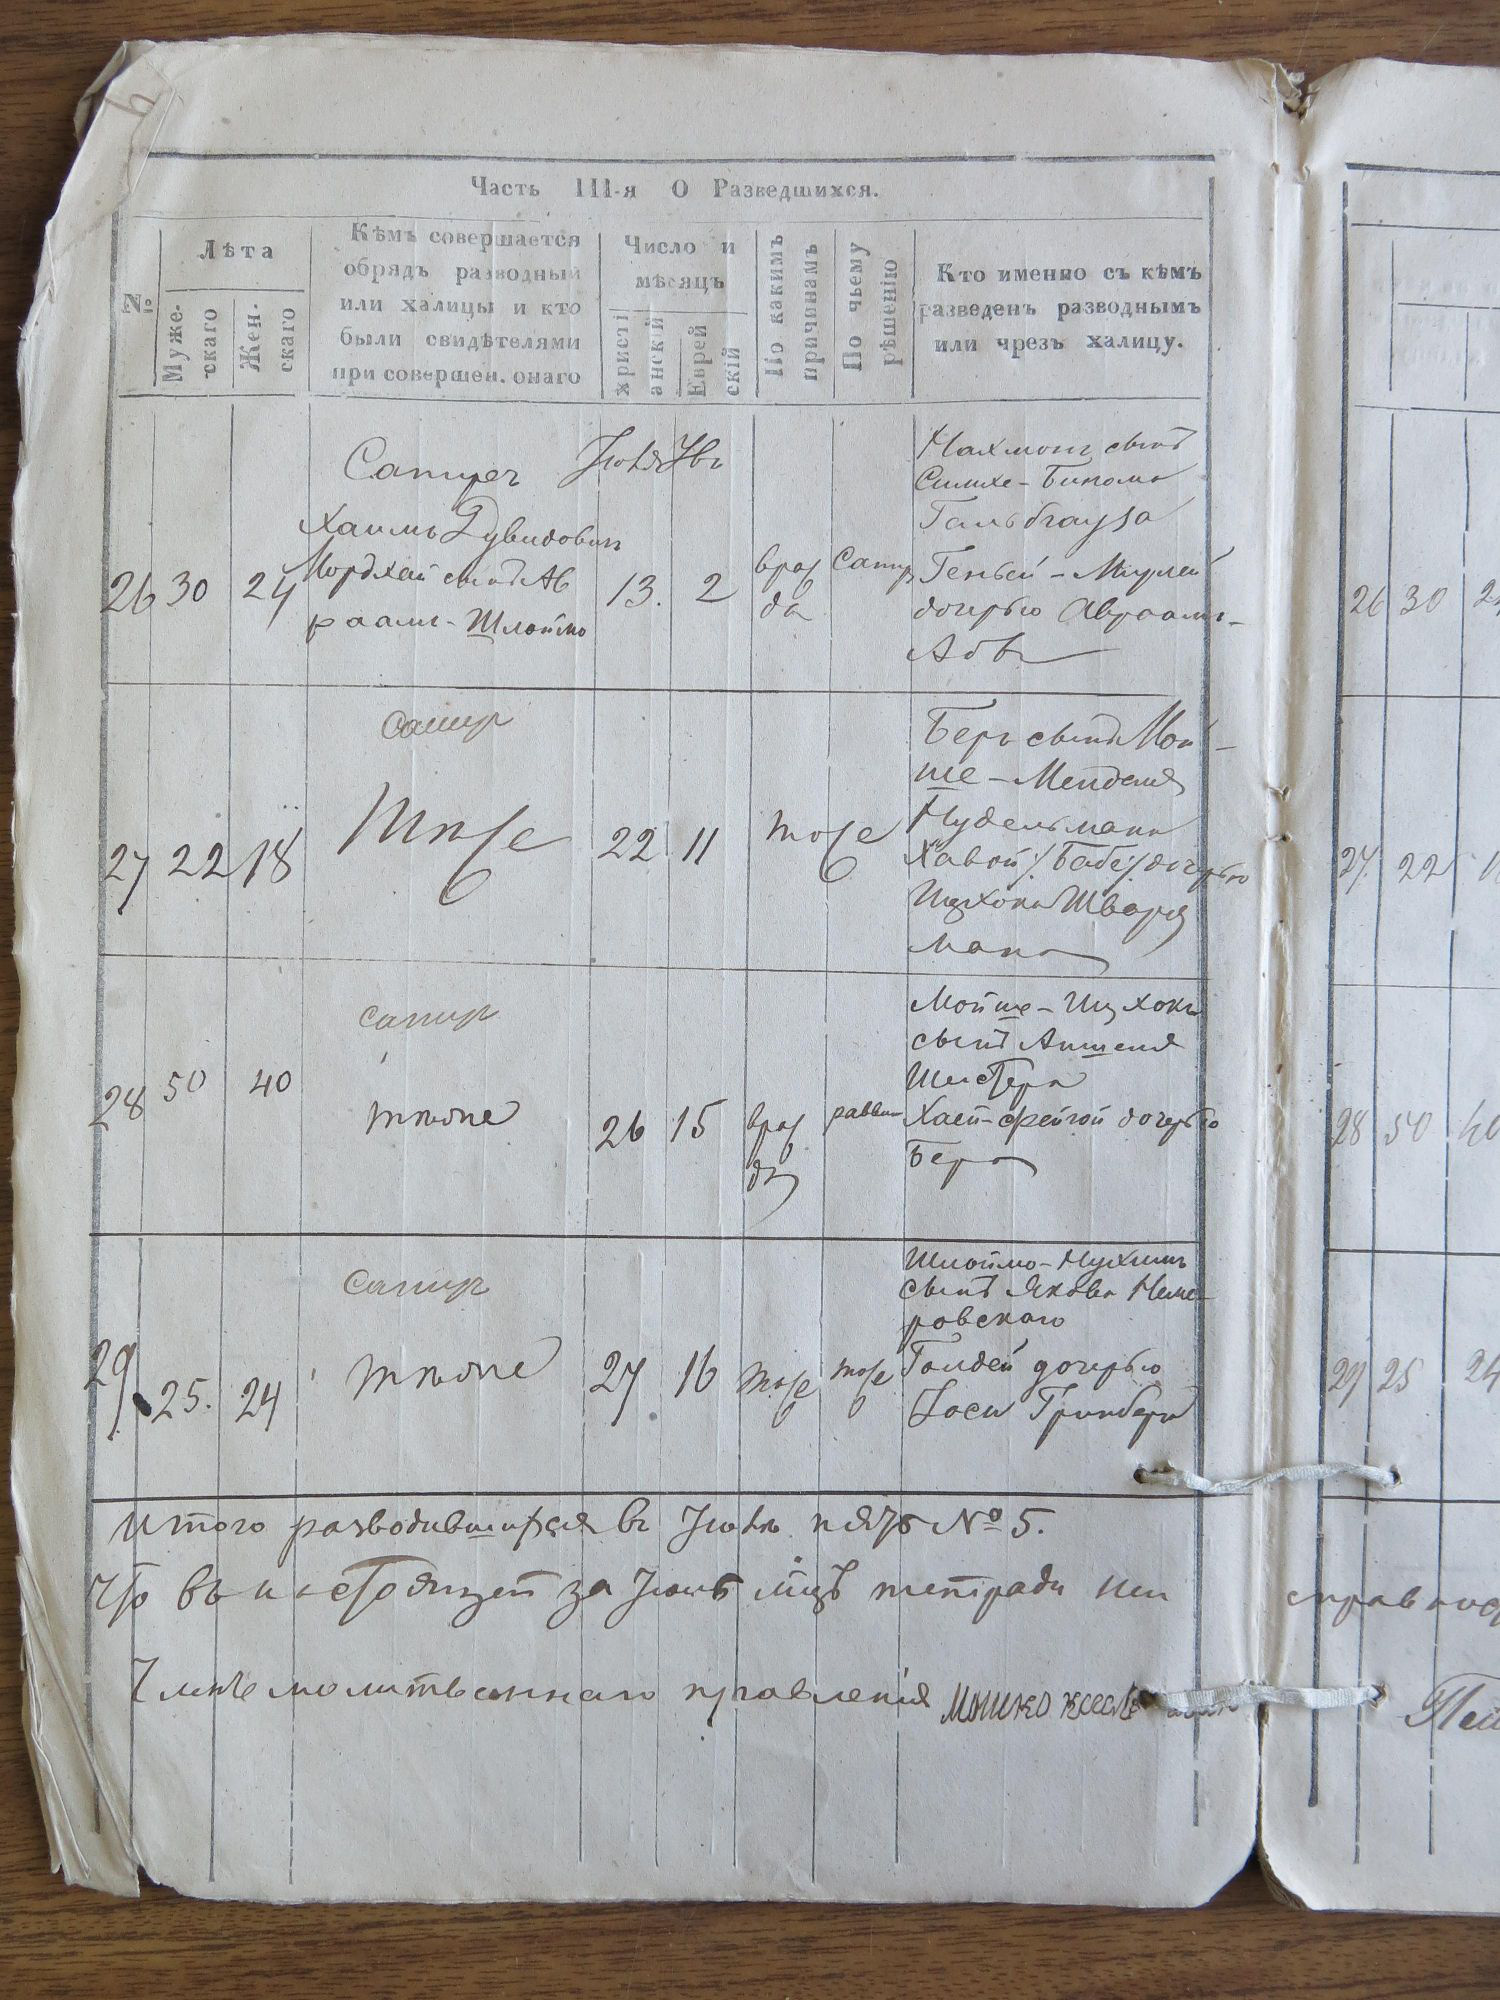 Часть III-я О Разведшихся.
№
Лѣта
Муже-
скаго
Жен-
скаго
Кѣмъ совершается
обрядъ разводный
или халицы и кто
были свидѣтелями
при совершен. онаго
Число и
мѣсяцъ
христі
анскій
Еврей
скій
По какимъ
причинамъ
По чьему
рѣшенію
Кто именно съ кѣмъ
разведенъ разводнымъ
или чрезъ халицу.
26 30 24
Хаимъ Дувидовичъ
Мордхай сынъ Ав
раамъ-Шлоймо
13. 2
враж
да
Нахманъ сынъ
Гольбгауза
дочерью Авраамъ-
27 22 18
сапир
тоже
22 11
тоже
Беръ сынъ Мой-
ше-Менделя
Нудельмана
Хавой /:Бабе:/ дочерью
Ицхока Шварц
мана
28 50 40
сапир
тпоне
26 15
враж
да
раввин
Мойше-Ицхокъ
сынъ Аншеля
Шестера
Хаей-Фейгой дочерью
Бера
29 25. 24
сапир
тпоне
27 16
тоже
тоже
Шлоймо-Нухимъ
сынъ Якова Неме-
ровскаго
Голдей дочерью
Іоси Гринберга
Итого разводившихся въ Іюлѣ пять № 5.
Что въ настоящей за Іюль мцъ тетради
Члнъ молитвеннаго правленія Мошко
26 30
27. 22
28 50
29 25 24